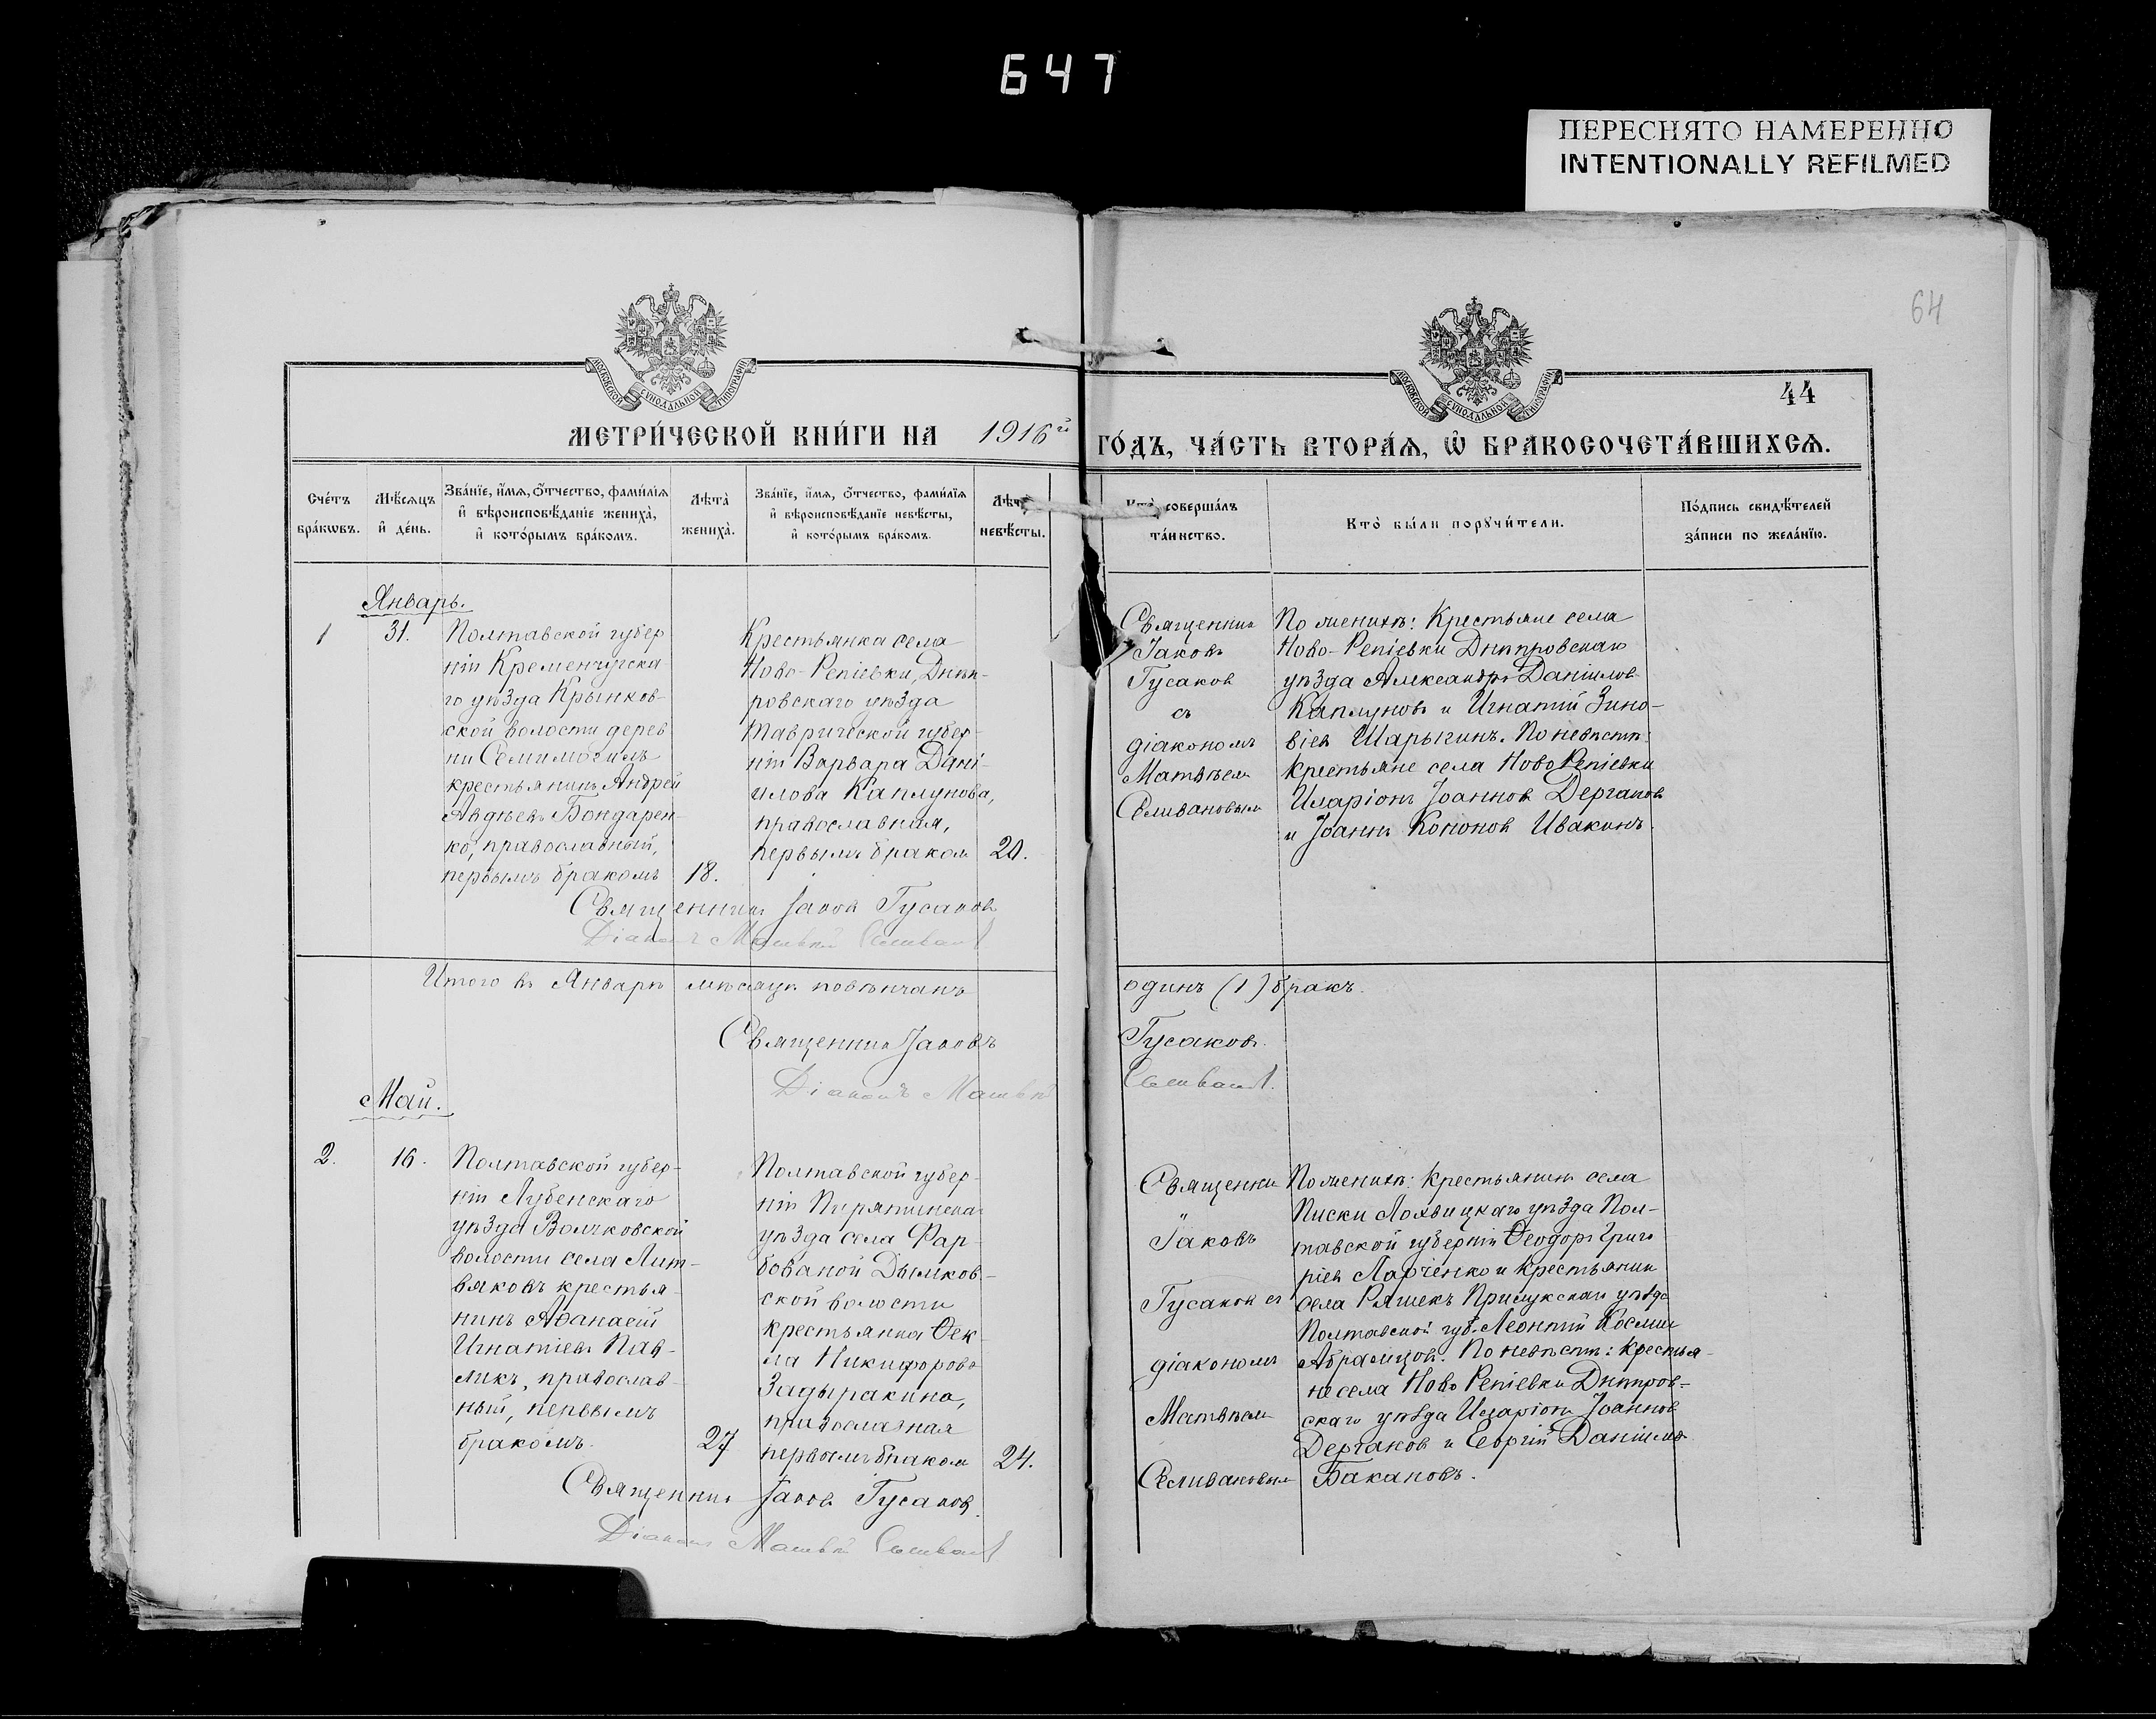 647
ПЕРЕСНЯТО НАМЕРЕННО
INTENTIONALLY REFILMED
64
МОСКОВСКОЙ СѴНОДАЛЬНОЙ ТИПОГРАФІИ
МОСКОВСКОЙ СѴНОДАЛЬНОЙ ТИПОГРАФІИ
44
МЕТРИ́ЧЕСКОЙ КНИ́ГИ НА 1916й ГО́ДЪ, ЧА́СТЬ ВТОРА́Ѧ, Ѡ҆ БРАКОСОЧЕТА́ВШИХСѦ.
Сче́тъ
бра́кѡвъ.
Мѣ́сѧцъ
и҆ де́нь.
Зва́нїе, и҆́мѧ, ѻ҆́тчество, фами́лїѧ
и҆ вѣроисповѣ́данїе жениха̀,
и҆ кото́рымъ бра́комъ.
Лѣта̀
жениха̀.
Зва́нїе, и҆́мѧ, ѻ҆́тчество, фами́лїѧ
и҆ вѣроисповѣ́данїе невѣ́сты,
и҆ кото́рымъ бра́комъ.
невѣ́сты.
соверша́лъ
та́инство.
Кто̀ бы́ли порꙋчи́тели.
По́дпись свидѣ́телей
за́писи по жела́нїю.
Январь.
1
31.
Полтавской губер
ніи Кременчугска
го уѣзда Крынков-
ской волости дерев
ни Семимогилъ
крестьянинъ Андрей
Авдѣевъ Бондарен-
ко, православный,
первымъ бракомъ
18.
Крестьянка села
Ново-Репіевки, Днѣп-
ровскаго уѣзда
Таврической губер-
ніи Варвара Дані-
илова Каплунова,
православная,
первымъ браком
20.
Священник
Іаковъ
Гусаков
съ
діакономъ
Матвѣем
Селивановым
По женихѣ: Крестьяне села
Ново-Репіевки Днѣпровскаго
уѣзда Александръ Даніилов
Каплуновъ и Игнатій Зино-
віев Шарыгинъ. По невѣстѣ:
Крестьяне села Ново Репіевки
Иларіонъ Іоаннов Дергачов
и Іоаннъ Кононов Ивакинъ.
Священникъ Іаков Гусаковъ
Діаконъ Матвѣй Селиванов
Итого въ Январѣ мѣсяцѣ повѣнчанъ одинъ (1) бракъ.
Священник Іаковъ Гусаковъ.
Діаконъ Матвѣй Селиванов.
Май.
2.
16.
Полтавской губер-
ніи Лубенскаго
уѣзда Волчковской
волости села Лит-
вяковъ крестья-
нинъ Аѳанасій
Игнатіев Пав-
ликъ, православ-
ный, первымъ
бракомъ.
27
Полтавской губер-
ніи Пирятинска
уѣзда села Фар-
бованой Дымков-
ской волости
крестьянка Ѳек-
ла Никифорова
Задыракина,
православная
первымъ браком
24.
Священник
Іаковъ
Гусаков съ
діакономъ
Матвѣем
Селивановым
По женихѣ: Крестьянинъ села
Писки Лохвицкаго уѣзда Пол-
тавской губерніи Ѳеодоръ Григо
ріев Ларченко и крестьянин
села Ряшекъ Прилукскаго уѣзда
Полтавской губ. Леонтій Космин
По невѣстѣ: Крестья-
не села Ново Репіевки Днѣпров-
скаго уѣзда Иларіонъ Іоаннов
Дергачов и Георгій Даніилов
Бакановъ.
Священник Іаков Гусаков.
Діаконъ Матвѣй Селиванов